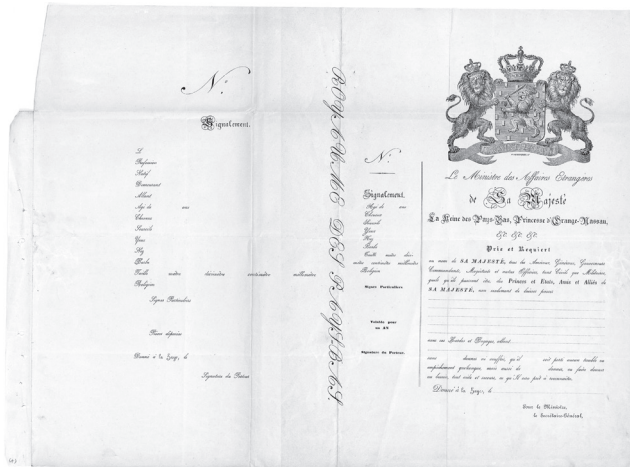 N.º
Signalement.
Profession
Natif
Demeurant
Allant
Agé de ans
Cheveux
Sourcils
Yeux
Nez
Taille mètre décimètre centimètre millimètre
Religion
Signes Particuliers
Pièces déposées
Donné à la Haye, le
Signature du Porteur
ROYAUME DES PAYS-BAS.
N.º
Signalement.
Agé de ans
Cheveux
Sourcils
Yeux
Nez
Taille mètre déci-
mètre centimètre millimètre
Religion
Signes Particuliers.
Valable pour
un AN
Signature du Porteur.
Le Ministre des Affaires Etrangères
de Sa Majesté
La Reine des Pays-Bas, Princesse d'Orange-Nassau,
etc. etc. etc.
Prie et Requiert
au nom de SA MAJESTÉ, tous les Amiraux, Généraux, Gouverneurs
Commandants, Magistrats et autres Officiers, tant Civils que Militaires,
quels qu'ils puissent être des Princes et Etats, Amis et Alliés de
SA MAJESTÉ, non seulement de laisser passer
avec ses Hardes et Bagages, allant
sans donner ni souffrir, qu'il soit porté aucun trouble ou
empêchement quelconque, mais aussi de donner, ou faire donner
au besoin, tout aide et secours, ce qu'il sera prêt à reconnaître.
Donné à la Haye, le
Pour le Ministre,
le Secrétaire-Général.